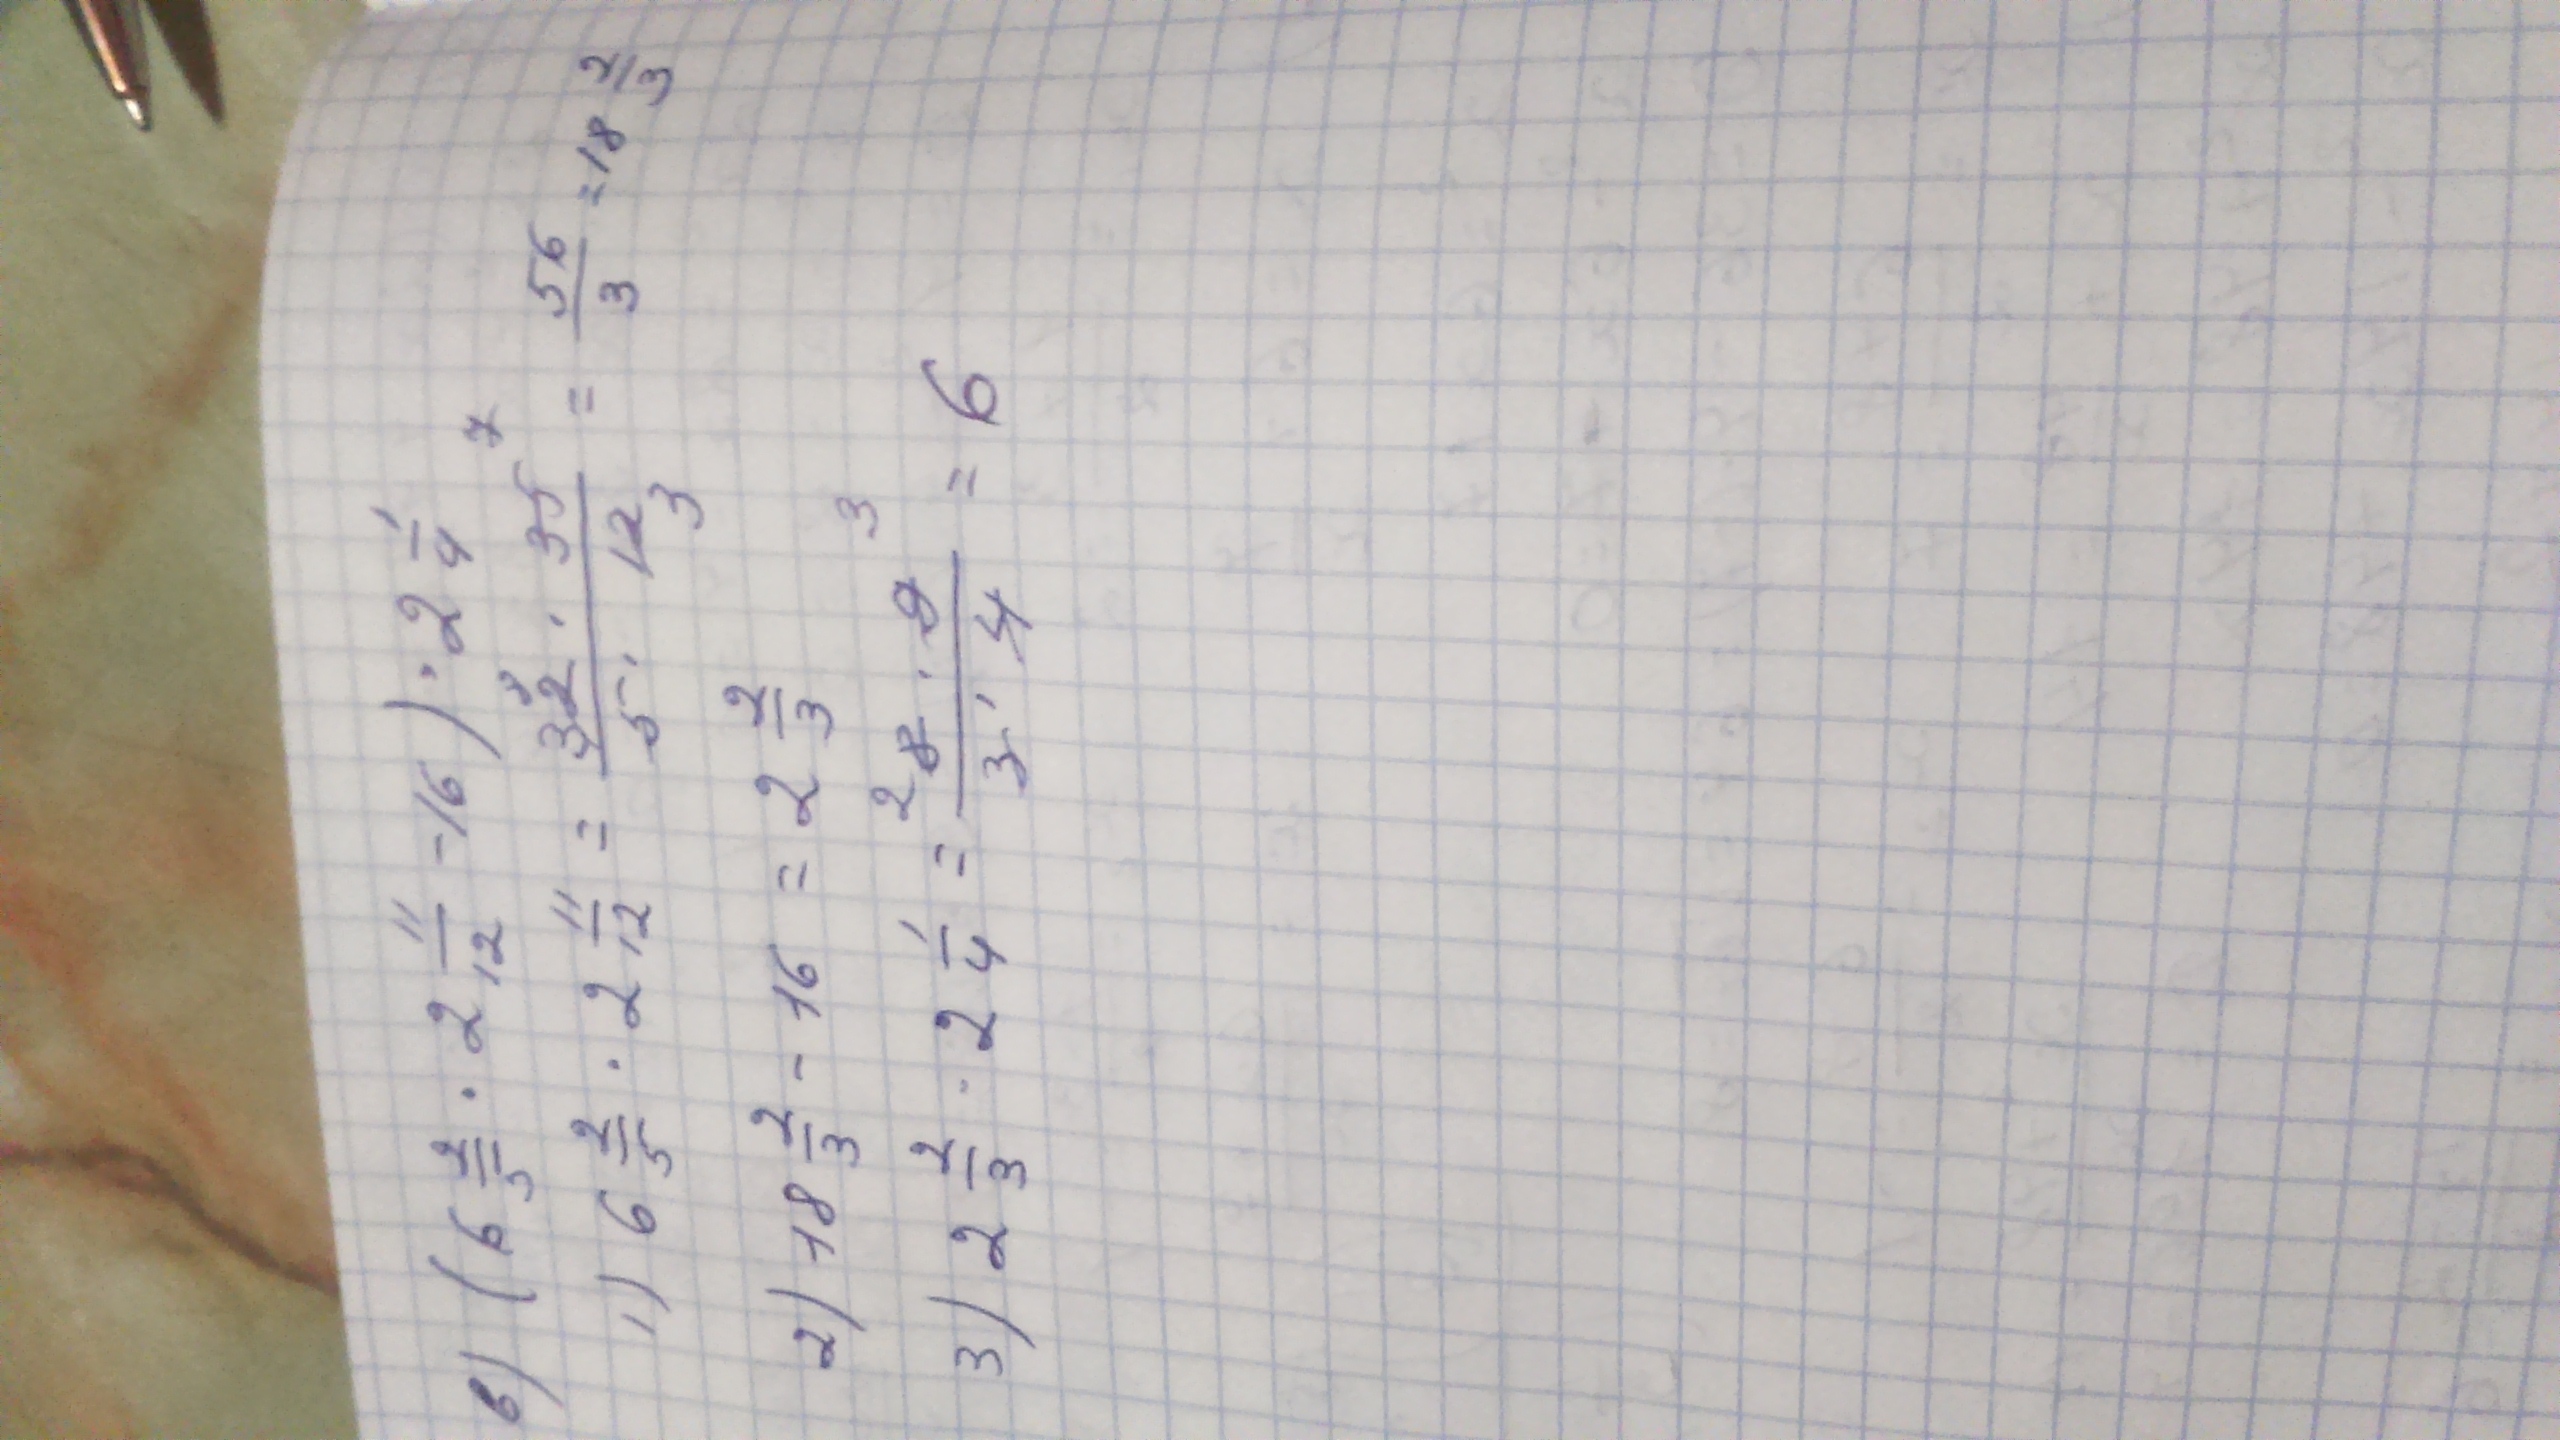 в) (6 2/5 · 2 11/12 - 16) · 2 1/4
1) 6 2/5 · 2 11/12 = 32 · 35 / 5 · 12 = 56/3 = 18 2/3
2) 18 2/3 - 16 = 2 2/3
3) 2 2/3 · 2 1/4 = 8 · 9 / 3 · 4 = 6